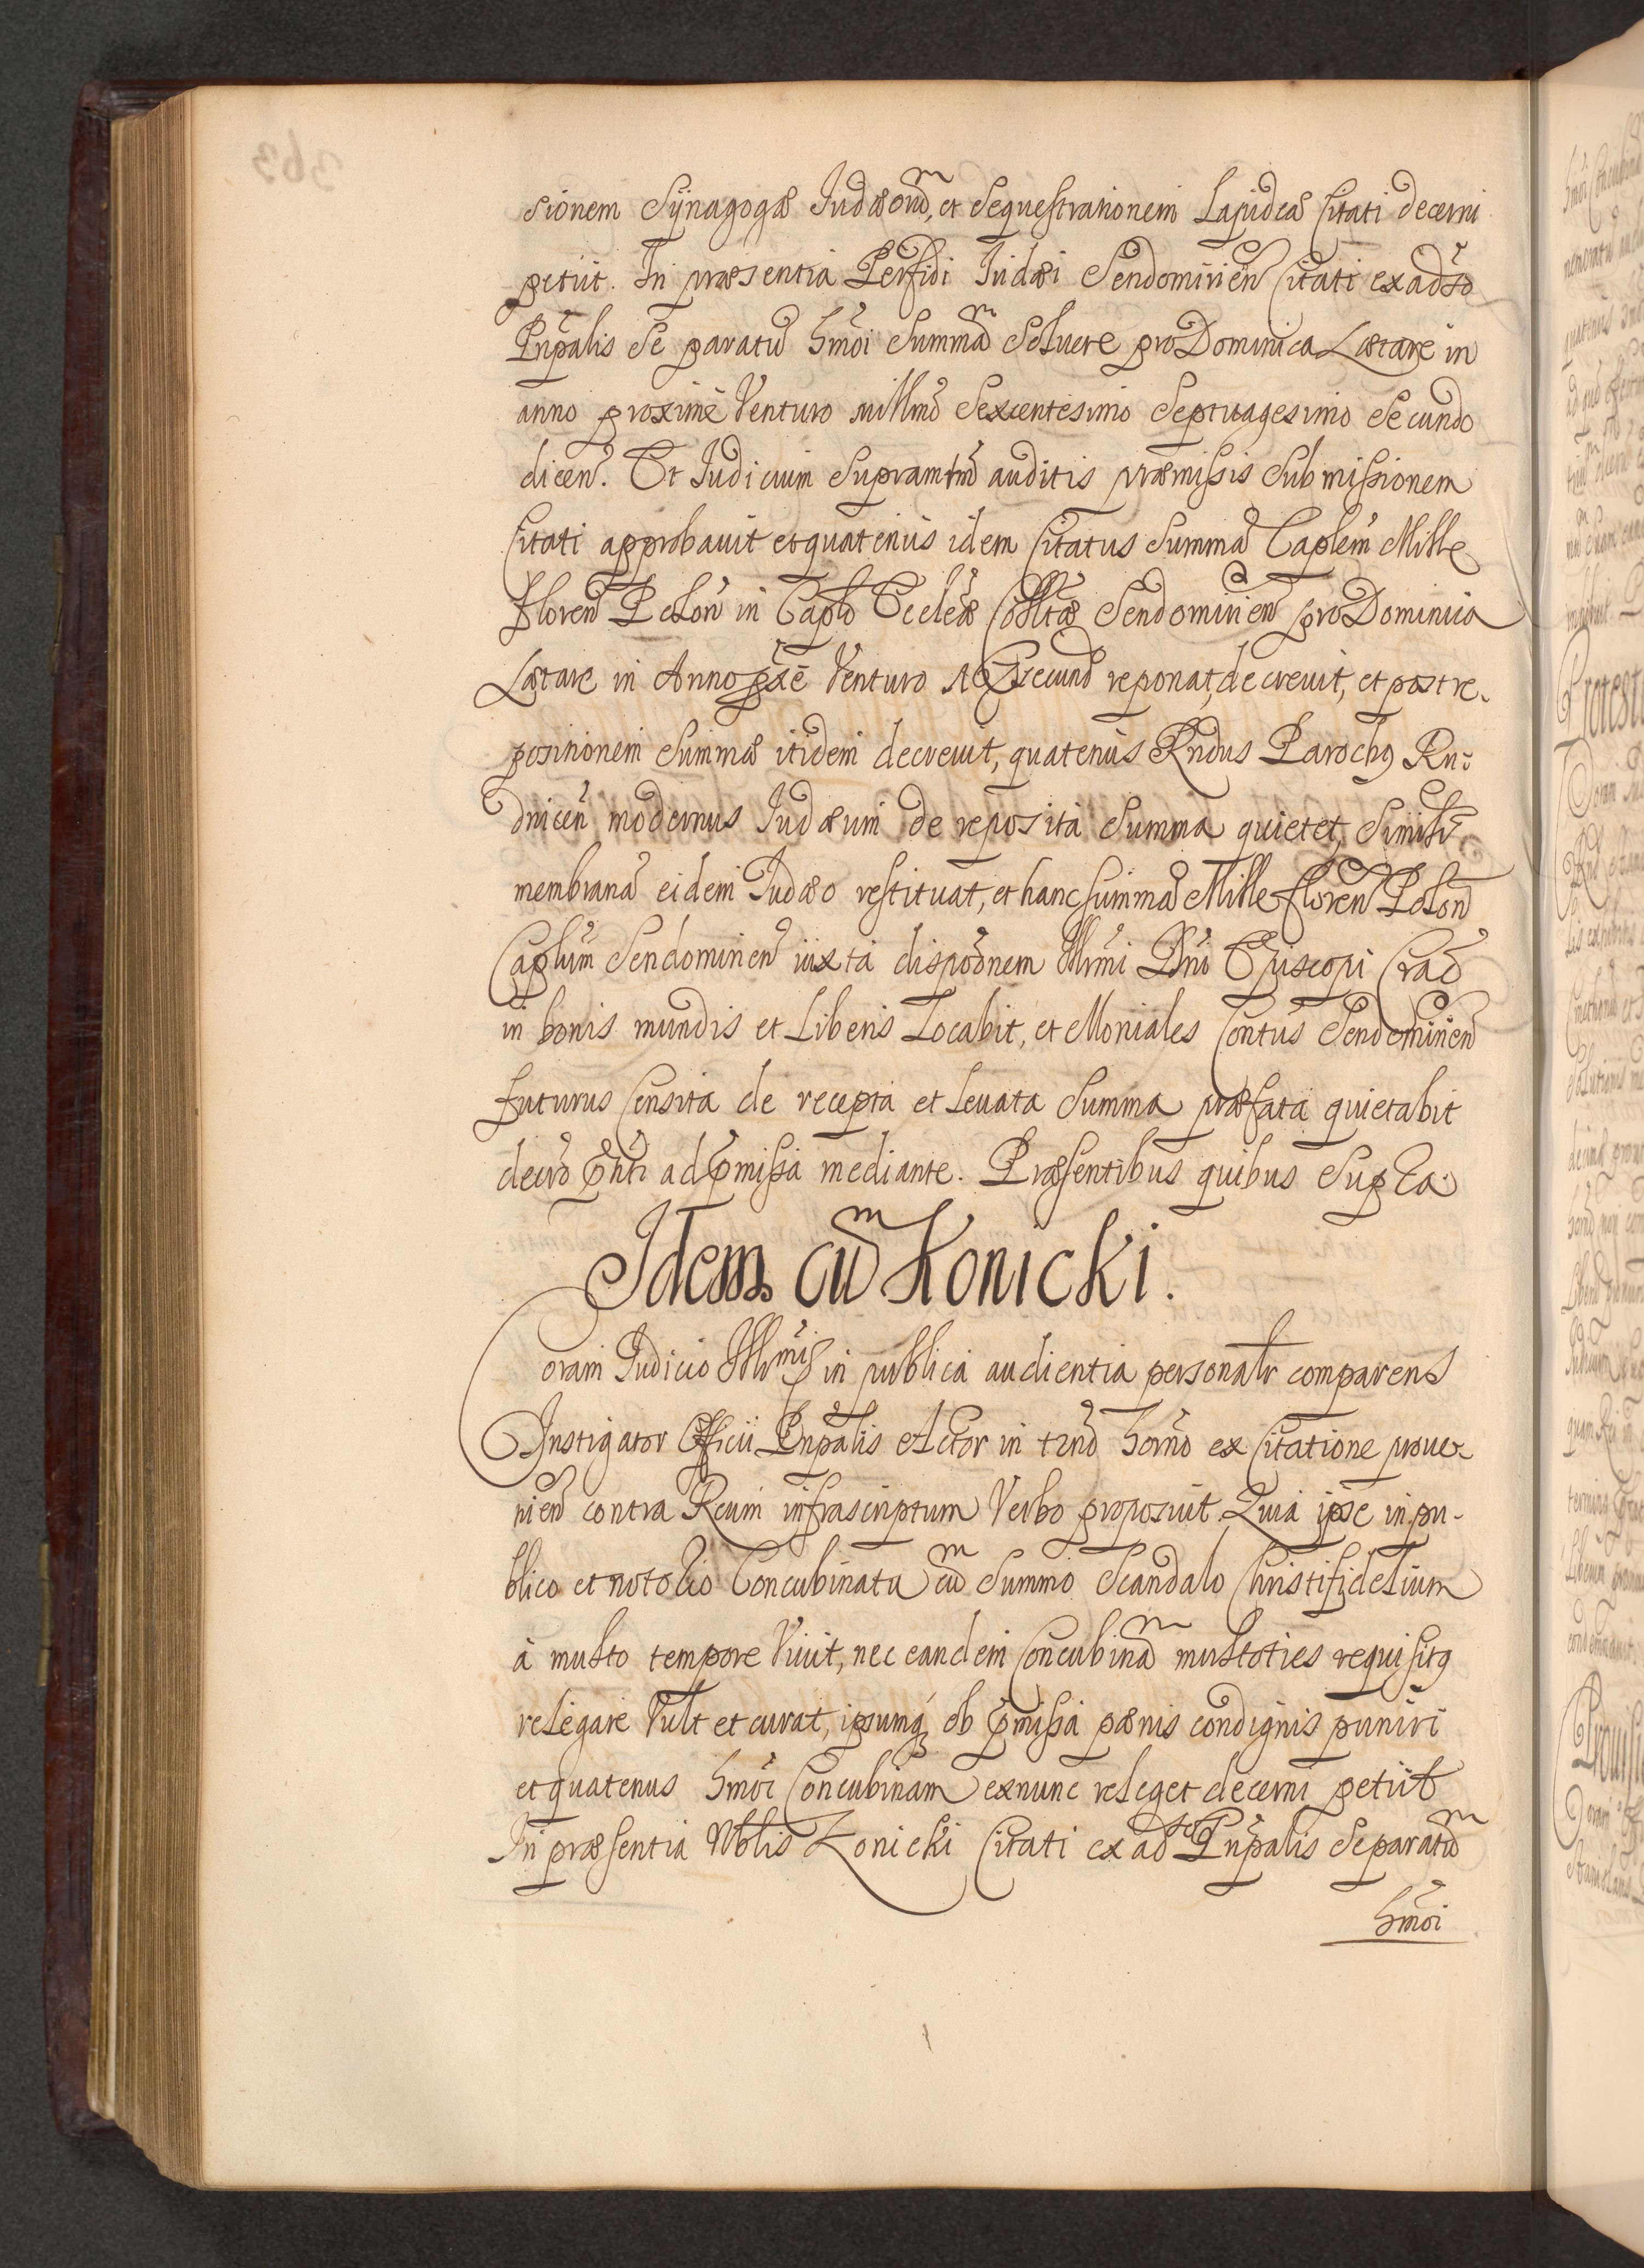 sionem Synagogæ Judæorũ, et sequestrationem Lapideæ Citati decerni
petiit. In præsentia Perfidi Judæi Sendomirien̄ Citati ex adṽo
Pñpalis se paratũ hm̃oi summã soluere pro Dominica Lætare in
anno proximè Venturo millm̃o Sexcentesimo Septuagesimo Secundo
dicen̄. Et Judicium supramtm̃ auditis præmissis submissionem
Citati approbauit et quatenus idem Citatus summã Caplem̃ Mille
floren̄ Polon̄ in Caplo Ecclæ Colltæ Sendomirien̄ pro Dominica
Lætare in Anno pxẽ Venturo secund reponat, decreuit, et post re-
positionem summæ itidem decreuit, quatenus Rndus Parochꝯ Ru-
dnicen̄ modernus Judæum de reposita summa quietet, similr̃
membranã eidem Judæo restituat, et hanc summã Mille floren̄ Polon̄
Caplum̃ Sendomirien̄ iuxta dispoñem Illrm̃i Dñi Episcopi Crac̄
in bonis mundis et Liberis Locabit, et Moniales Contus Sendomirien̄
futurus Censita de recepta et leuata summa præfata quietabit
decrõ pñti ad p̃missa mediante. Præsentibus quibus supra
Idem cũ Konicki.
Coram Judicio Illrmi in publica audientia personalr comparens
Instigator Officii Pñpalis Actor in tño horño ex Citatione proue-
nien̄ contra Reum infrascriptum Verbo proposuit Quia ipse in pu-
blico et notorio Concubinatu cũ summo Scandalo Christifidelium
à multo tempore Viuit, nec eandem Concubinã multoties requisitꝯ
relegare Vult et curat, ipsumq̃ ob p̃missa pœnis condignis puniri
et quatenus hm̃oi Concubinam exnunc releget decerni petiit
In præsentia Nblis Konicki Citati ex adṽo Pñpalis se paratũ
hm̃oi